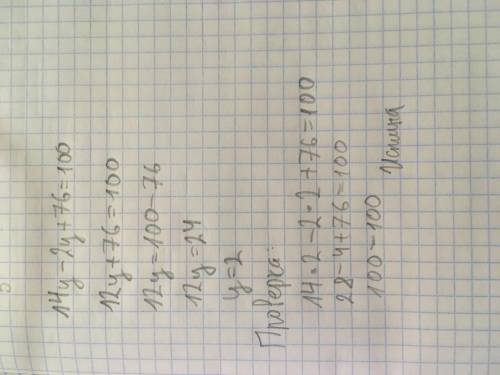 14y-2y+76=100
12y+76=100
12y=100-76
12y=24
y=2
Проверка:
14•2-2•2+76=100
28-4+76=100
100-100
Истина